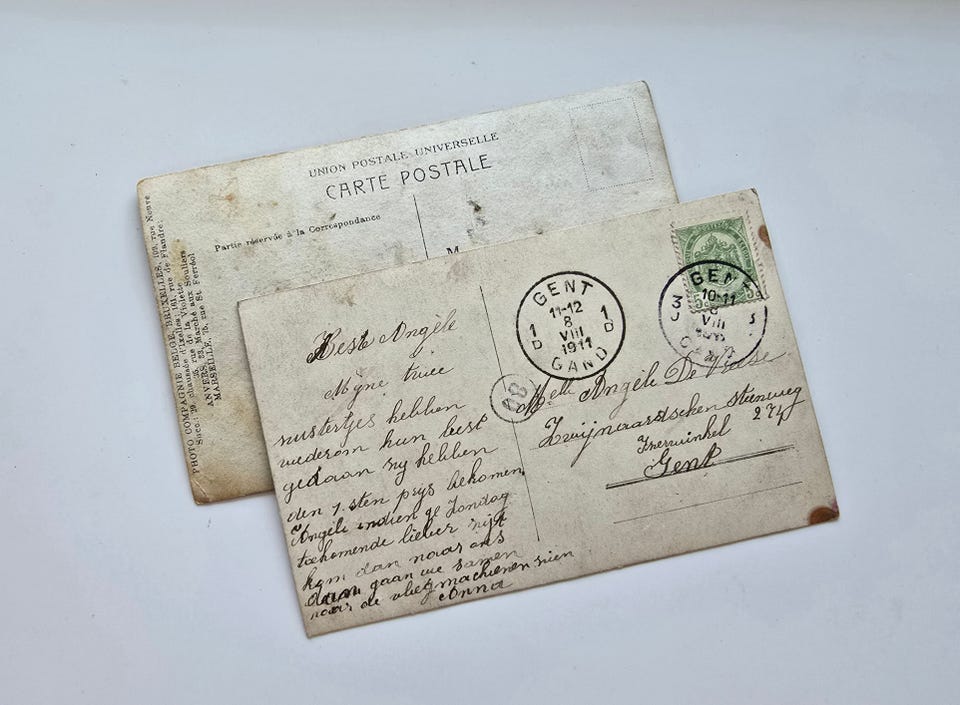 UNION POSTALE UNIVERSELLE
CARTE POSTALE
Partie réservée à la Correspondance
M
PHOTO COMPAGNIE BELGE, BRUXELLES, 109, rue Neuve
Succ.: 29, chaussée d'Ixelles; 161, rue de Flandre;
25, rue de la Violette
ANVERS, 33, Marché aux Souliers
MARSEILLE, 75, rue St Ferréol
Beste Angèle
Myne twee
zustertjes hebben
wederom hun best
gedaan zy hebben
den 1.sten prys bekomen
Angèle indien ge Zondag
toekomende liever zijt
kom dan naar ons
dan gaan we samen
naar de vliegmachienen zien
Anna
GENT
11-12
8
VIII
1911
1 D
1 D
GAND
GENT
10-11
8
VIII
5c
5c
30
Melle Angèle De
Zwijnaardschen steenweg
274
Gent